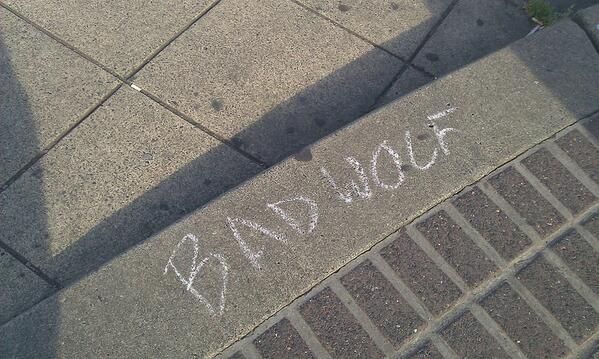 BAD WOLF